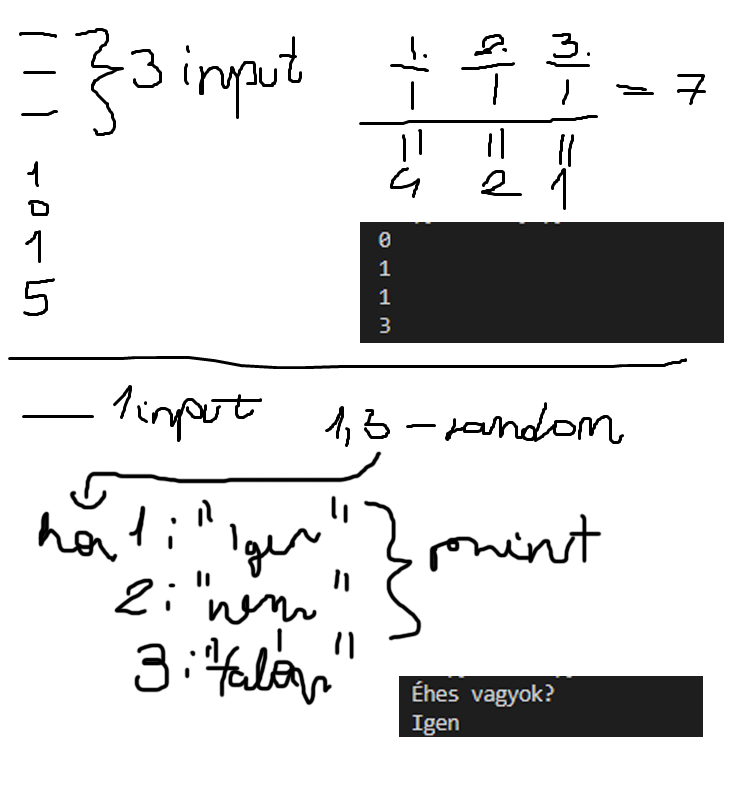 3 input
1
0
1
5
1. 2. 3.
1 1 1 = 7
|| || ||
4 2 1
0
1
1
3
1 input
1,3 - random
ha 1: "Igen"
2: "nem"
3: "talán"
print
Éhes vagyok?
Igen